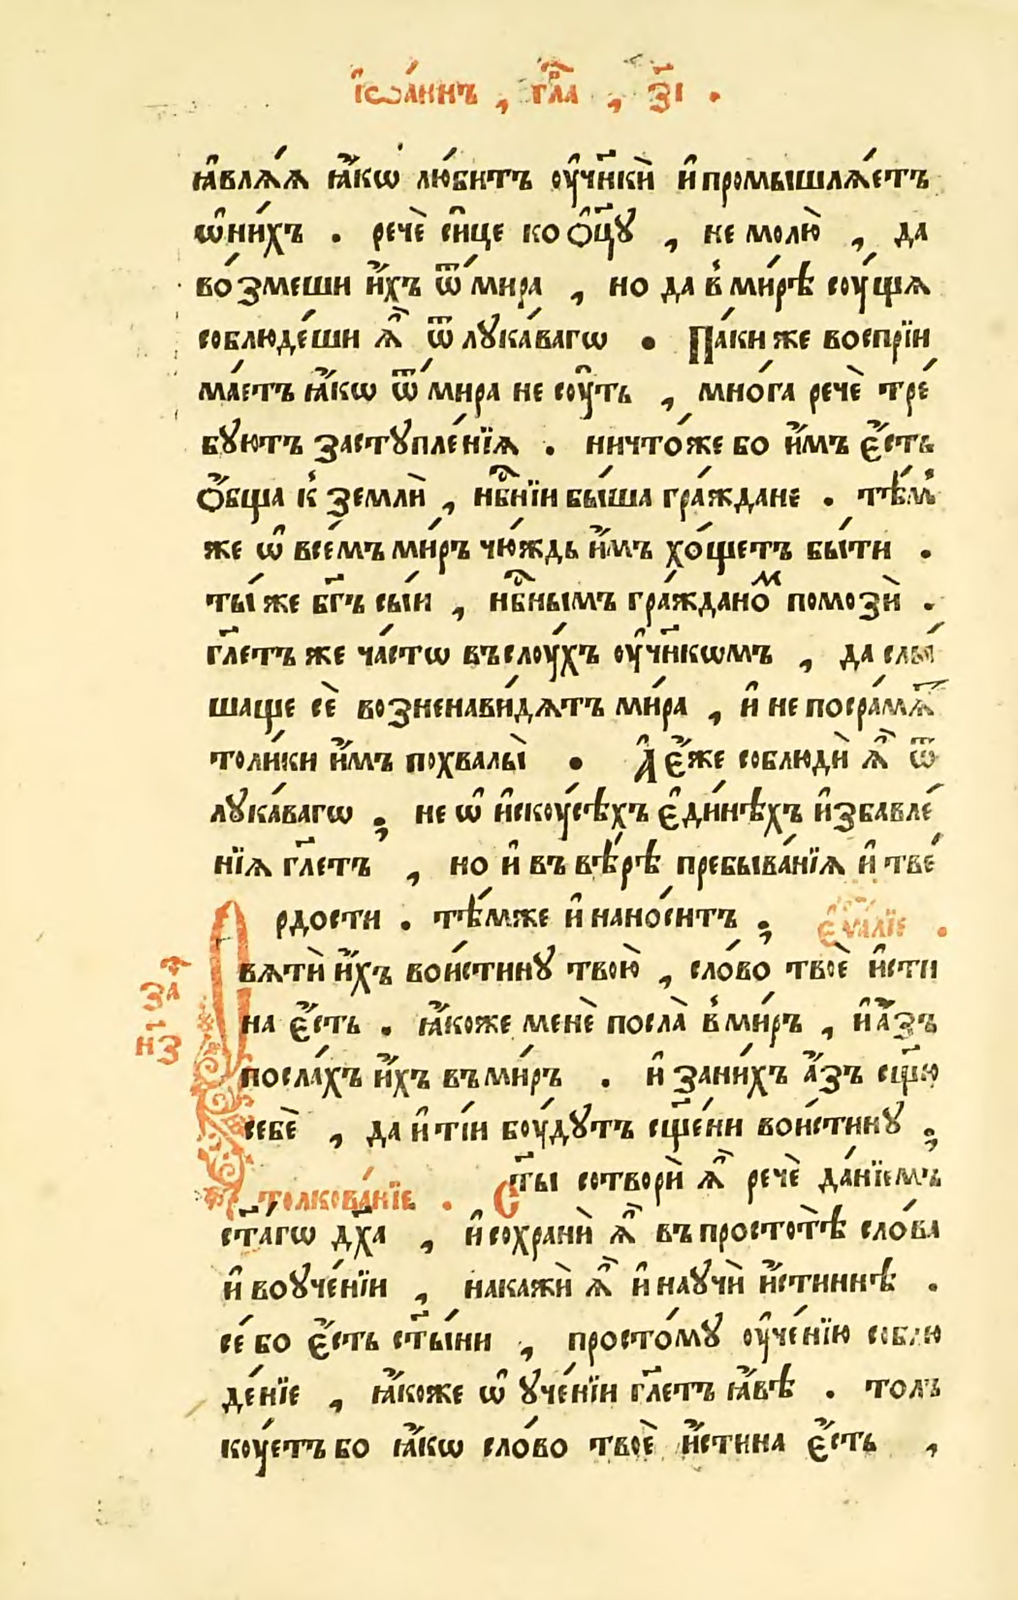 І҆ѡа́ннъ , гл҃а , з҃і .
ꙗ҆влѧ́ѧ ꙗ҆́кѡ лю́битъ ᲂу҆ч҃нкѝ и҆ промышлѧ́етъ
ѡ҆ ни́хъ . речѐ си́це ко ѻ҆ц҃ꙋ , не молю̀ , да
во́змеши и҆́хъ ѿ ми́ра , но да в̾ ми́рѣ сᲂу́щѧ
соблюде́ши ѧ҆̀ ѿ лꙋка́вагѡ . Па́ки же воспрїи
ма́етъ ꙗ҆́кѡ ѿ ми́ра не сᲂу́ть , мно́га речѐ тре́
бꙋютъ застꙋпле́нїѧ . ничто́же бо и҆́мъ є҆́сть
ѻ҆́бща к̾ землѝ , нб҃нїи бы́ша гра́ждане . тѣ́м̾
же ѡ҆ все́мъ ми́ръ чю́ждь и҆́мъ хо́щетъ бы́ти .
ты́ же бг҃ъ сы́и , нб҃нымъ гра́жданоⷨ помозѝ .
гл҃етъ же ча́стѡ въ слᲂу́хъ ᲂу҆ч҃нкѡмъ , да слы́
шаще сѐ возненави́дѧтъ ми́ра , и҆ не посра́мѧⷮ
толи́ки и҆́мъ похвалы̀ . А є҆́же соблюдѝ ѧ҆̀ ѿ
лꙋка́вагѡ , не ѡ҆ и҆скᲂу́сѣхъ є҆ди́нѣхъ и҆збавле́
нїѧ гл҃етъ , но и҆ въ вѣ́рѣ пребыва́нїѧ и҆ тве́
рдости . тѣ́мже и҆ нано́ситъ ; є҆ѵа́лїе .
Ѻвѧтѝ и҆́хъ вои́стинꙋ твою̀ , сло́во твоѐ и҆́сти
на є҆́сть . ꙗ҆́коже менѐ посла̀ в̾ ми́ръ , и҆ а҆́зъ
посла́хъ и҆́хъ въ ми́ръ . и҆ за ни́хъ а҆́зъ сщ҃ю
себѐ , да и҆ ті́и бᲂу́дꙋтъ сщ҃е́ни вои́стинꙋ ;
за
н҃з
толкова́нїе . Ст҃ы сотворѝ ѧ҆̀ речѐ да́нїемъ
ст҃а́гѡ дх҃а , и҆ сохранѝ ѧ҆̀ въ простотѣ̀ сло́ва
и҆ во уче́нїи , накажѝ ѧ҆̀ и҆ научѝ и҆́стиннѣ .
се́ бо є҆́сть ст҃ы́ни , просто́мꙋ ᲂу҆че́нїю соблю
де́нїе , ꙗ҆́коже ѡ҆ ꙋче́нїи гл҃етъ ꙗ҆́вѣ . толъ
кᲂу́етъ бо ꙗ҆́кѡ сло́во твоѐ и҆́стина є҆́сть ,